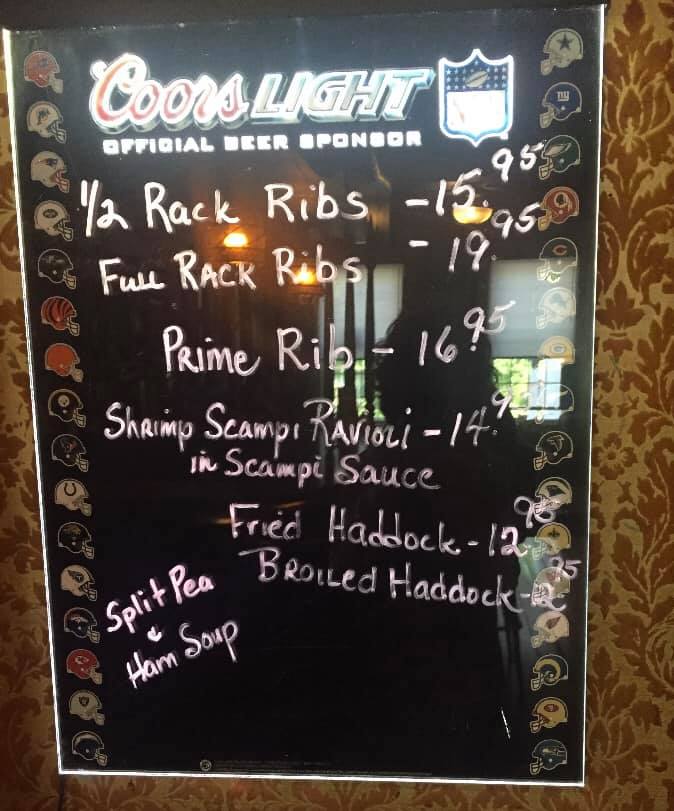 Coors LIGHT
OFFICIAL BEER SPONSOR
1/2 Rack Ribs - 15.95
Full Rack Ribs - 19.95
Prime Rib - 16.95
Shrimp Scampi Ravioli - 14.95
in Scampi Sauce
Fried Haddock - 12.95
Broiled Haddock - 12.95
Split Pea
& 
Ham Soup